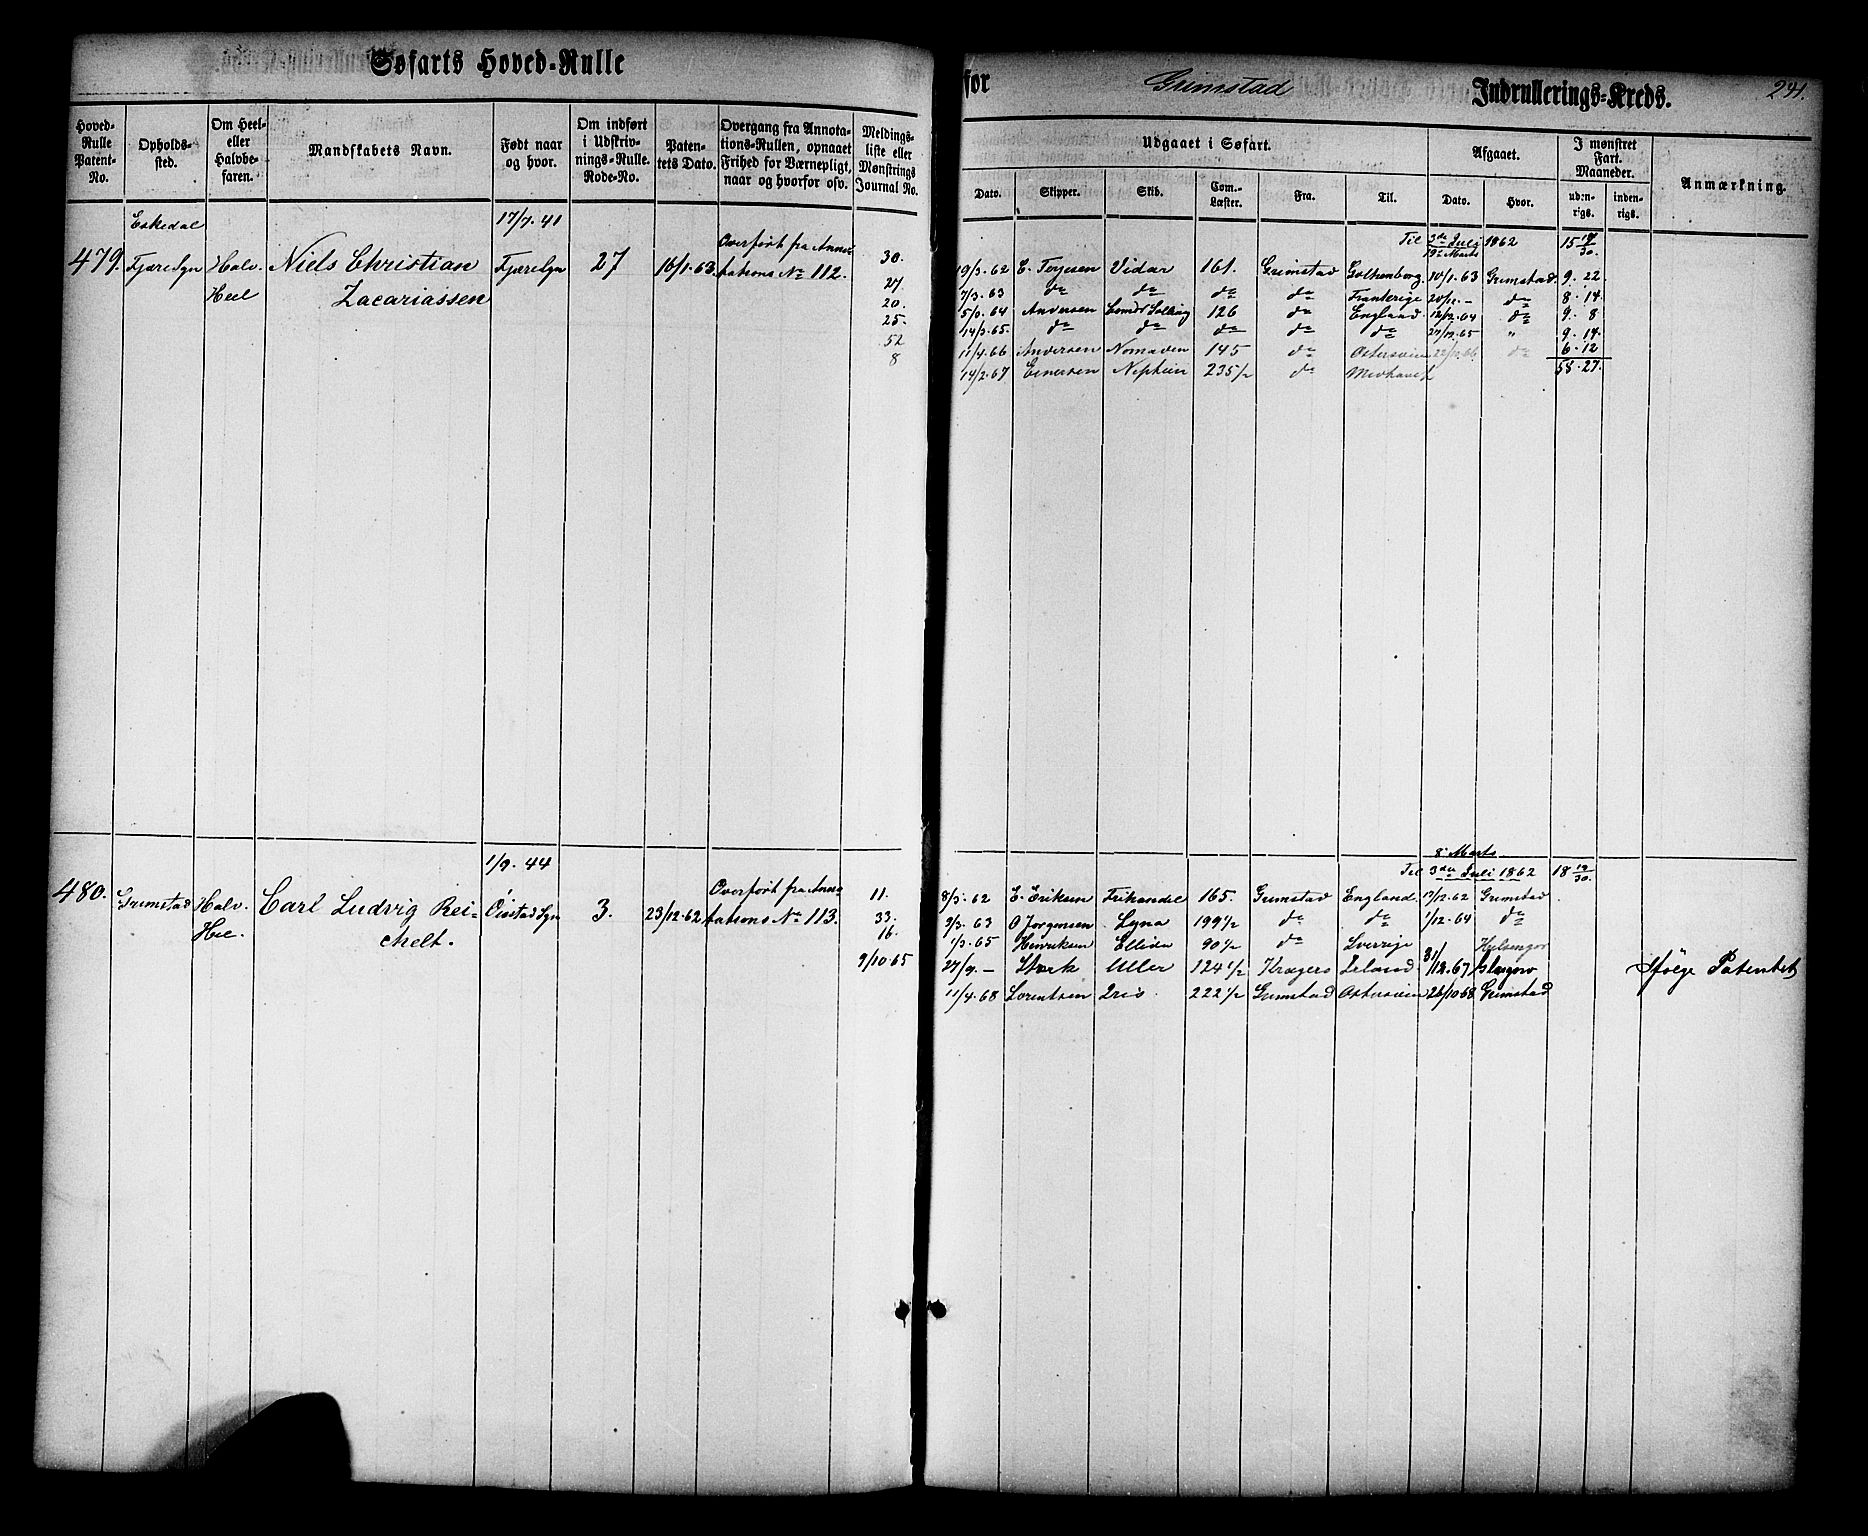 Søfarts Hoved-Rulle
for Grimstad Indrullerings-Kreds. 241.
Hoved-Rulle Patent-No.
Opholds-sted.
Om Heel- eller Halvbe-faren.
Mandskabets Navn.
Født naar og hvor.
Om indført i Udskriv-nings-Rulle. Rode-No.
Paten-tets Dato.
Overgang fra Annota-tions-Rullen, opnaaet Frihed for Værnepligt, naar og hvorfor osv.
Meldings-liste eller Mønstrings Journal No.
Udgaaet i Søfart.
Afgaaet.
I mønstret Fart. Maaneder.
Anmærkning.
Dato. Skipper. Skib. Com.-Læster. Fra. Til. Dato. Hvor. uden-rigs. inden-rigs.
Eskedal 17/7. 41
479. Fjære Sgn Halv. Niels Christian Fjære Sgn 27 10/1. 63. Overført fra Anno-
Heel Zacariassen tations No 112.
30.
27
20.
25.
52
8
Til 3die Juli 1862
19de Marts
19/3. 62 E. Terjesen Vidar 161. Grimstad Gothenborg. 10/1. 63 Grimstad. 9. 22
7/3. 63 do do do do Frankrige 20/12. - do 8. 14
Andersen 126 do England 12/12. 64 do 9. 8
14/3. 65 do do do do do 27/12. 65 " 9. 14
11/4. 66 Andersen Nomaden 145 do Østersøien do 6. 12
14/2. 67 Einersen Neptun 235½ do 58. 27.
1/9. 44
480. Grimstad Halv. Carl Ludvig Rei- Øiestad Sgn 3. 23/12. 62 Overført fra Anno-
Hel. chelt. tations No 113.
11.
33.
16.
9/10. 65
8de Marts
Til 3die Juli 1862 18 19/30.
8/3. 62 E. Eriksen Frihandel 165. Grimstad England. 17/12. 62 Grimstad
9/3. 63 O Jørgensen Lyna 199½ do do 1/12. 64 do
1/3. 65 Henriksen Ellida 90½ do Sverrige Helsingør
27/9. - Stærk Uller 124½ Kragerø Irland 31/12. 67 Glasgow Ifølge Patentet
11/4. 68 Lorentsen Iris 222½ Grimstad Østersøien 26/10 68 Grimstad